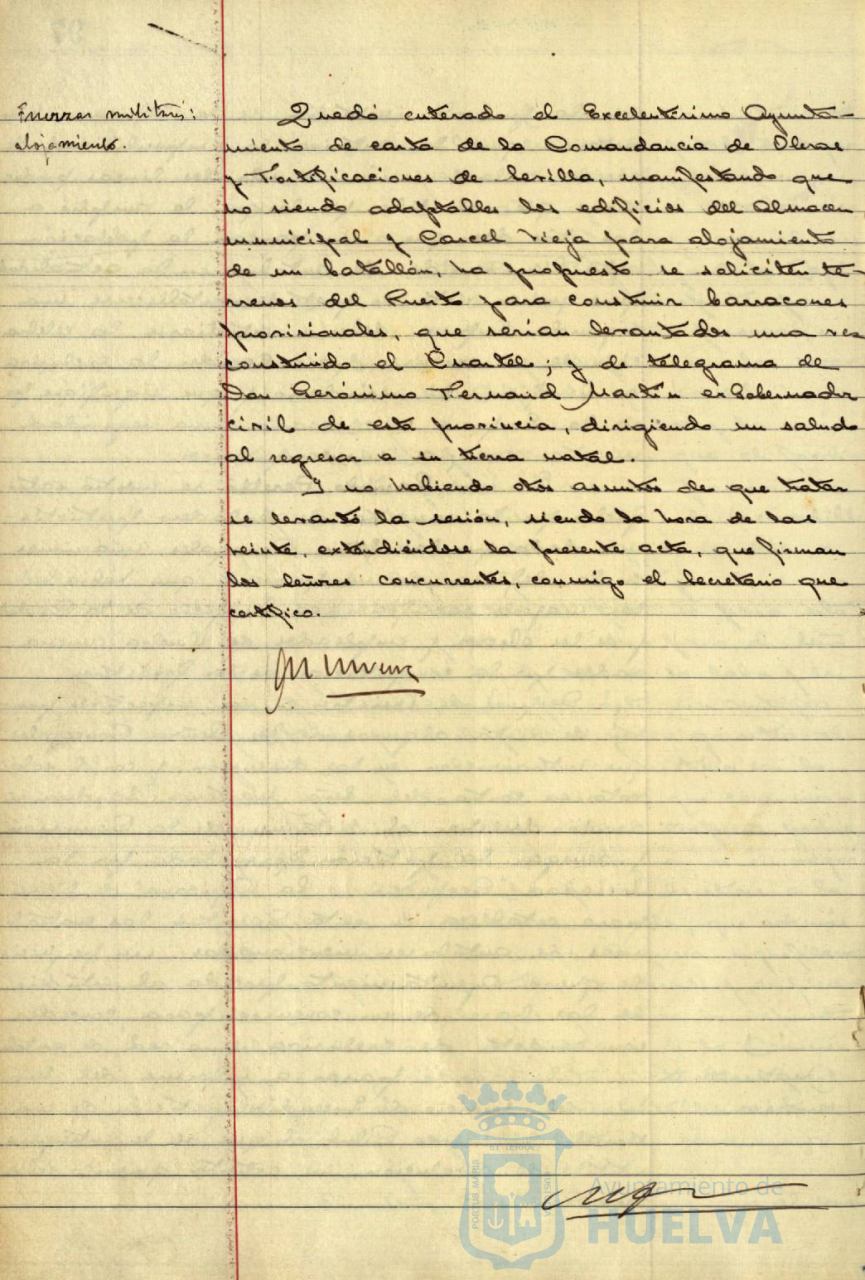 Fuerzas militares:
alojamiento.
Quedó enterado el Excelentísimo Ayunta-
miento de carta de la Comandancia de Obras
y Fortificaciones de Sevilla, manifestando que
no siendo adaptables los edificios del Almacen
municipal y Carcel Vieja para alojamiento
de un batallón, ha propuesto se soliciten te-
rrenos del Puerto para construir barracones
provisionales, que serían levantados una vez
construido el Cuartel; y de telegrama de
Don Gerónimo Fernaud Martín exGobernador
civil de esta provincia, dirigiendo un saludo
al regresar a su tierra natal.
Y no habiendo otros asuntos de que tratar
se levantó la sesión, siendo la hora de las
veinte, extendiéndose la presente acta, que firman
los Señores concurrentes, conmigo el Secretario que
certifico.
Ayuntamiento de
HUELVA